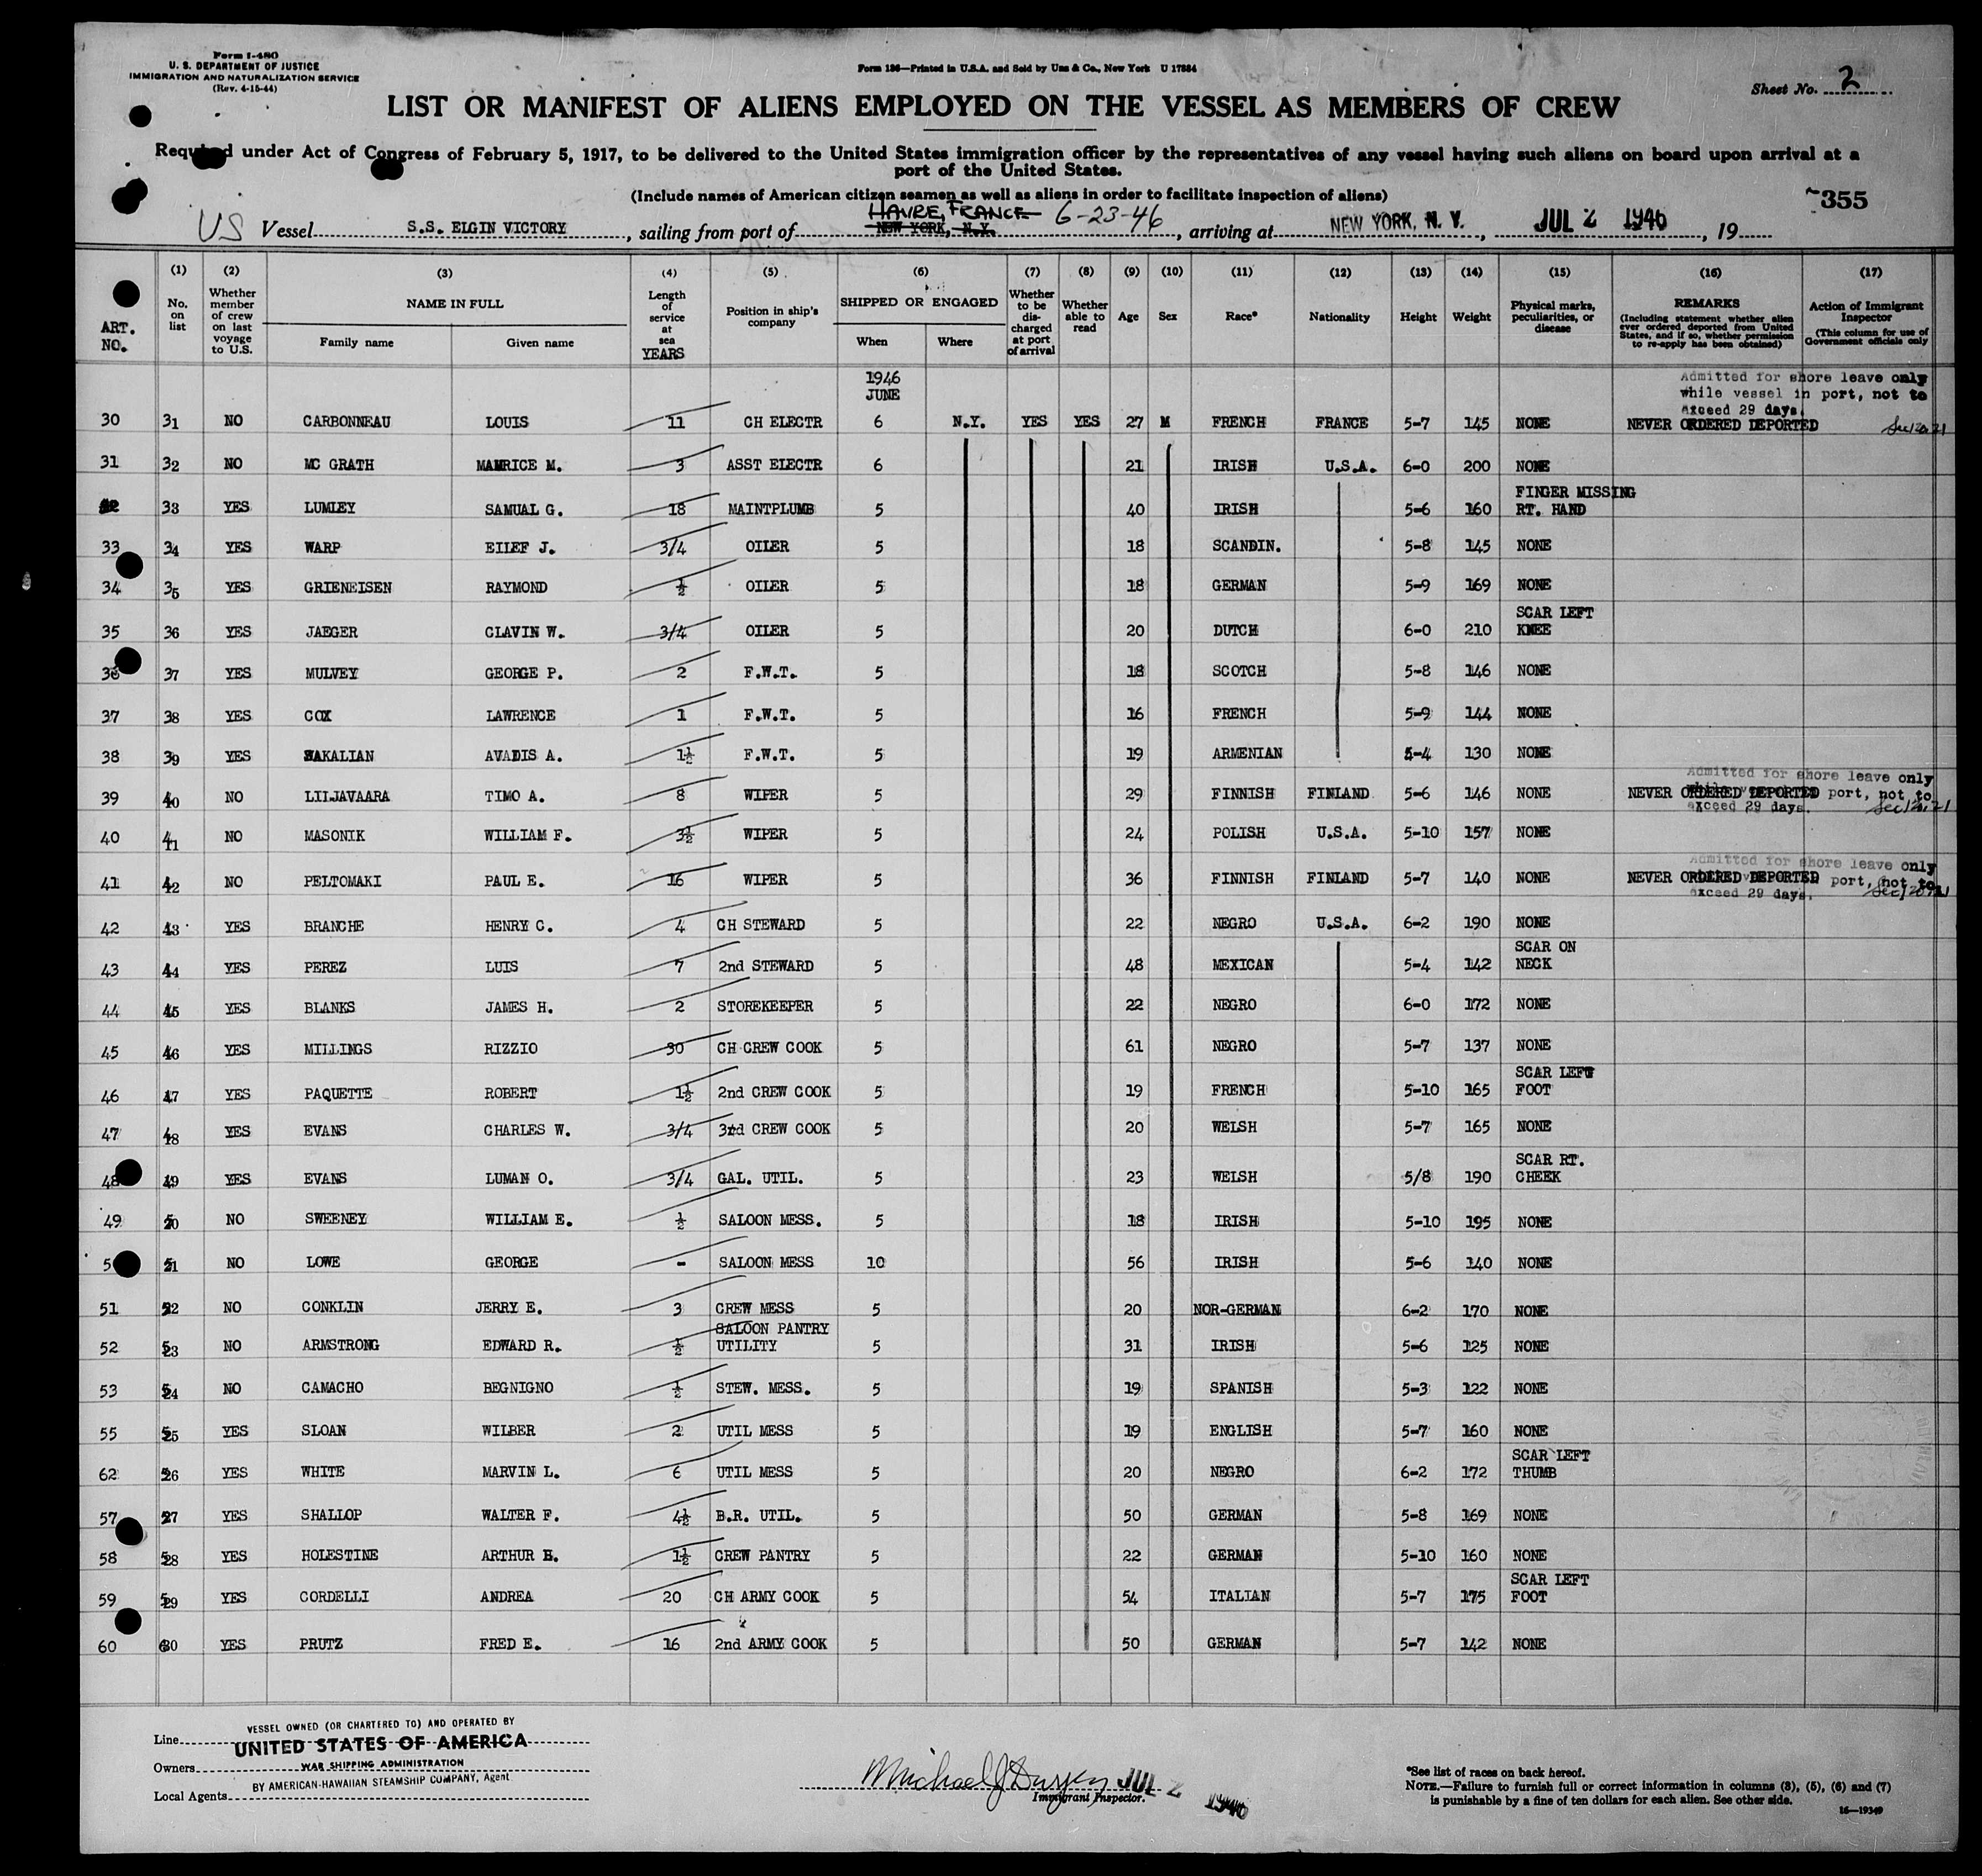 Form I-480
U. S. DEPARTMENT OF JUSTICE
IMMIGRATION AND NATURALIZATION SERVICE
(Rev. 4-15-44)
Form 186—Printed in U.S.A. and Sold by Unz & Co., New York U 17884
Sheet No. 2
LIST OR MANIFEST OF ALIENS EMPLOYED ON THE VESSEL AS MEMBERS OF CREW
Required under Act of Congress of February 5, 1917, to be delivered to the United States immigration officer by the representatives of any vessel having such aliens on board upon arrival at a
port of the United States.
(Include names of American citizen seamen as well as aliens in order to facilitate inspection of aliens)
355
HAVRE, FRANCE 6-23-46
US Vessel S.S. ELGIN VICTORY, sailing from port of NEW YORK, N.Y., arriving at NEW YORK, N. Y., JUL 2 1946, 19
ART. NO. (1) No. on list (2) Whether member of crew on last voyage to U.S. (3) NAME IN FULL Family name Given name (4) Length of service at sea YEARS (5) Position in ship's company (6) SHIPPED OR ENGAGED When Where (7) Whether to be discharged at port of arrival (8) Whether able to read (9) Age (10) Sex (11) Race* (12) Nationality (13) Height (14) Weight (15) Physical marks, peculiarities, or disease (16) REMARKS (Including statement whether alien ever ordered deported from United States, and if so, whether permission to re-apply has been obtained) (17) Action of Immigrant Inspector (This column for use of Government officials only
1946
JUNE
Admitted for shore leave only
while vessel in port, not to
exceed 29 days.
30 31 NO CARBONNEAU LOUIS 11 CH ELECTR 6 N.Y. YES YES 27 M FRENCH FRANCE 5-7 145 NONE NEVER ORDERED DEPORTED
31 32 NO MC GRATH MAURICE M. 3 ASST ELECTR 6 21 IRISH U.S.A. 6-0 200 NONE
33 YES LUMLEY SAMUAL G. 18 MAINTPLUMB 5 40 IRISH 5-6 160 FINGER MISSING RT. HAND
33 34 YES WARP EILEF J. 3/4 OILER 5 18 SCANDIN. 5-8 145 NONE
34 35 YES GRIENEISEN RAYMOND ½ OILER 5 18 GERMAN 5-9 169 NONE
35 36 YES JAEGER CLAVIN W. 3/4 OILER 5 20 DUTCH 6-0 210 SCAR LEFT KNEE
36 37 YES MULVEY GEORGE P. 2 F.W.T. 5 18 SCOTCH 5-8 146 NONE
37 38 YES COX LAWRENCE 1 F.W.T. 5 16 FRENCH 5-9 144 NONE
38 39 YES SAKALIAN AVADIS A. 1½ F.W.T. 5 19 ARMENIAN 5-4 130 NONE
Admitted for shore leave only
39 40 NO LILJAVAARA TIMO A. 8 WIPER 5 29 FINNISH FINLAND 5-6 146 NONE NEVER ORDERED DEPORTED port, not to
exceed 29 days.
40 41 NO MASONIK WILLIAM F. 3½ WIPER 5 24 POLISH U.S.A. 5-10 157 NONE
Admitted for shore leave only
41 42 NO PELTOMAKI PAUL E. 16 WIPER 5 36 FINNISH FINLAND 5-7 140 NONE NEVER ORDERED DEPORTED port, not to
exceed 29 days.
42 43 YES BRANCHE HENRY C. 4 CH STEWARD 5 22 NEGRO U.S.A. 6-2 190 NONE
43 44 YES PEREZ LUIS 7 2nd STEWARD 5 48 MEXICAN 5-4 142 SCAR ON NECK
44 45 YES BLANKS JAMES H. 2 STOREKEEPER 5 22 NEGRO 6-0 172 NONE
45 46 YES MILLINGS RIZZIO 30 CH CREW COOK 5 61 NEGRO 5-7 137 NONE
46 47 YES PAQUETTE ROBERT 1½ 2nd CREW COOK 5 19 FRENCH 5-10 165 SCAR LEFT FOOT
47 48 YES EVANS CHARLES W. 3/4 3rd CREW COOK 5 20 WELSH 5-7 165 NONE
48 49 YES EVANS LUMAN O. 3/4 GAL. UTIL. 5 23 WELSH 5/8 190 SCAR RT. CHEEK
49 50 NO SWEENEY WILLIAM E. ½ SALOON MESS. 5 18 IRISH 5-10 195 NONE
51 NO LOWE GEORGE - SALOON MESS 10 56 IRISH 5-6 140 NONE
51 52 NO CONKLIN JERRY E. 3 CREW MESS 5 20 NOR-GERMAN 6-2 170 NONE
52 53 NO ARMSTRONG EDWARD R. ½ SALOON PANTRY UTILITY 5 31 IRISH 5-6 125 NONE
53 54 NO CAMACHO BEGNIGNO ½ STEW. MESS. 5 19 SPANISH 5-3 122 NONE
55 55 YES SLOAN WILBER 2 UTIL MESS 5 19 ENGLISH 5-7 160 NONE
62 56 YES WHITE MARVIN L. 6 UTIL MESS 5 20 NEGRO 6-2 172 SCAR LEFT THUMB
57 57 YES SHALLOP WALTER F. 4½ B.R. UTIL. 5 50 GERMAN 5-8 169 NONE
58 58 YES HOLESTINE ARTHUR E. 1½ CREW PANTRY 5 22 GERMAN 5-10 160 NONE
59 59 YES CORDELLI ANDREA 20 CH ARMY COOK 5 54 ITALIAN 5-7 175 SCAR LEFT FOOT
60 60 YES PRUTZ FRED E. 16 2nd ARMY COOK 5 50 GERMAN 5-7 142 NONE
VESSEL OWNED (OR CHARTERED TO) AND OPERATED BY
Line UNITED STATES OF AMERICA
Owners WAR SHIPPING ADMINISTRATION
BY AMERICAN-HAWAIIAN STEAMSHIP COMPANY, Agent
Local Agents
JUL 2 1946
Immigrant Inspector.
*See list of races on back hereof.
NOTE.—Failure to furnish full or correct information in columns (3), (5), (6) and (7)
is punishable by a fine of ten dollars for each alien. See other side.
16—19349